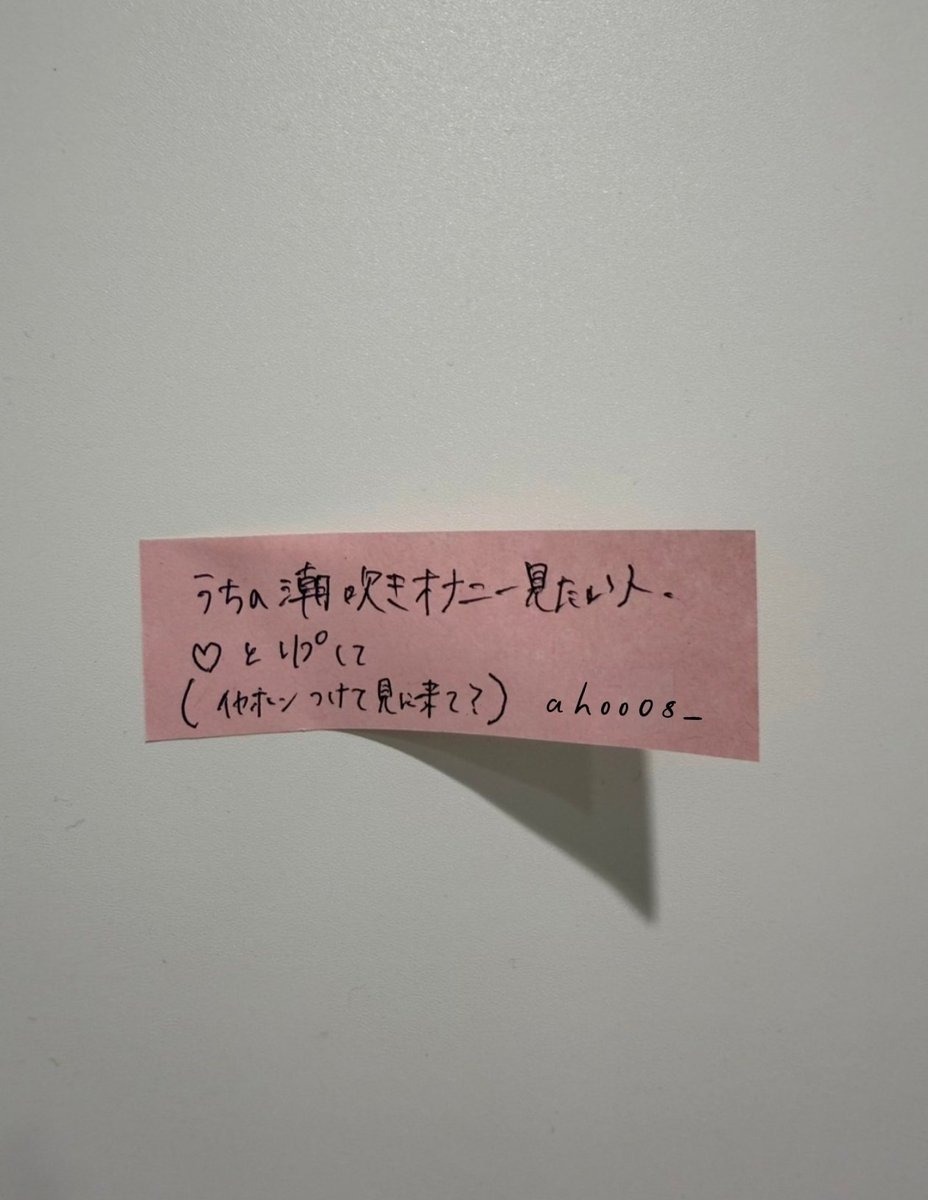 うちの潮吹きオナニー見たい人.
♡とリプして
(イヤホンつけて見に来て?) ahooo8_